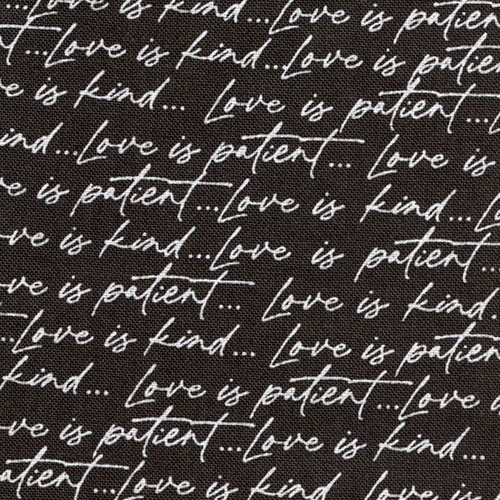 Love is patient
t...Love is kind...Love is patien
e is kind... Love is patient...L
ind...Love is patient... Love is
e is patient...Love is kind...L
ve is kind...Love is patient...
ve is patient... Love is kind.
t...Love is kind... Love is patien
kind... Love is patient...Love is
ve is patient...Love is kind...
atient...Love is kind...Love is